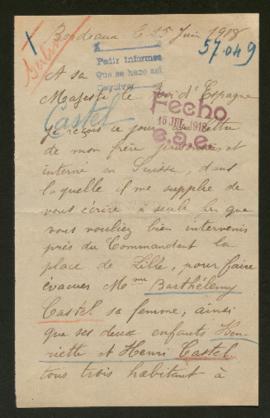 Bordeaux le 25 Juin 1918
57.049
Pedir informes
Que se haze así
A sa
Majesté le Roi d'Espagne
Castel
Fecho
15 JUL. 1918
Je reçois ce jour lettre
de mon frère et
interné en Suisse, dans
laquelle il me supplie de
vous écrire à seule fin que
vous vouliez bien intervenir
près du Commandant la
place de Lille, pour faire
évacuer Mme Barthélemy
Castel sa femme, ainsi
que ses deux enfants Hen-
riette et Henri Castel
tous trois habitant à